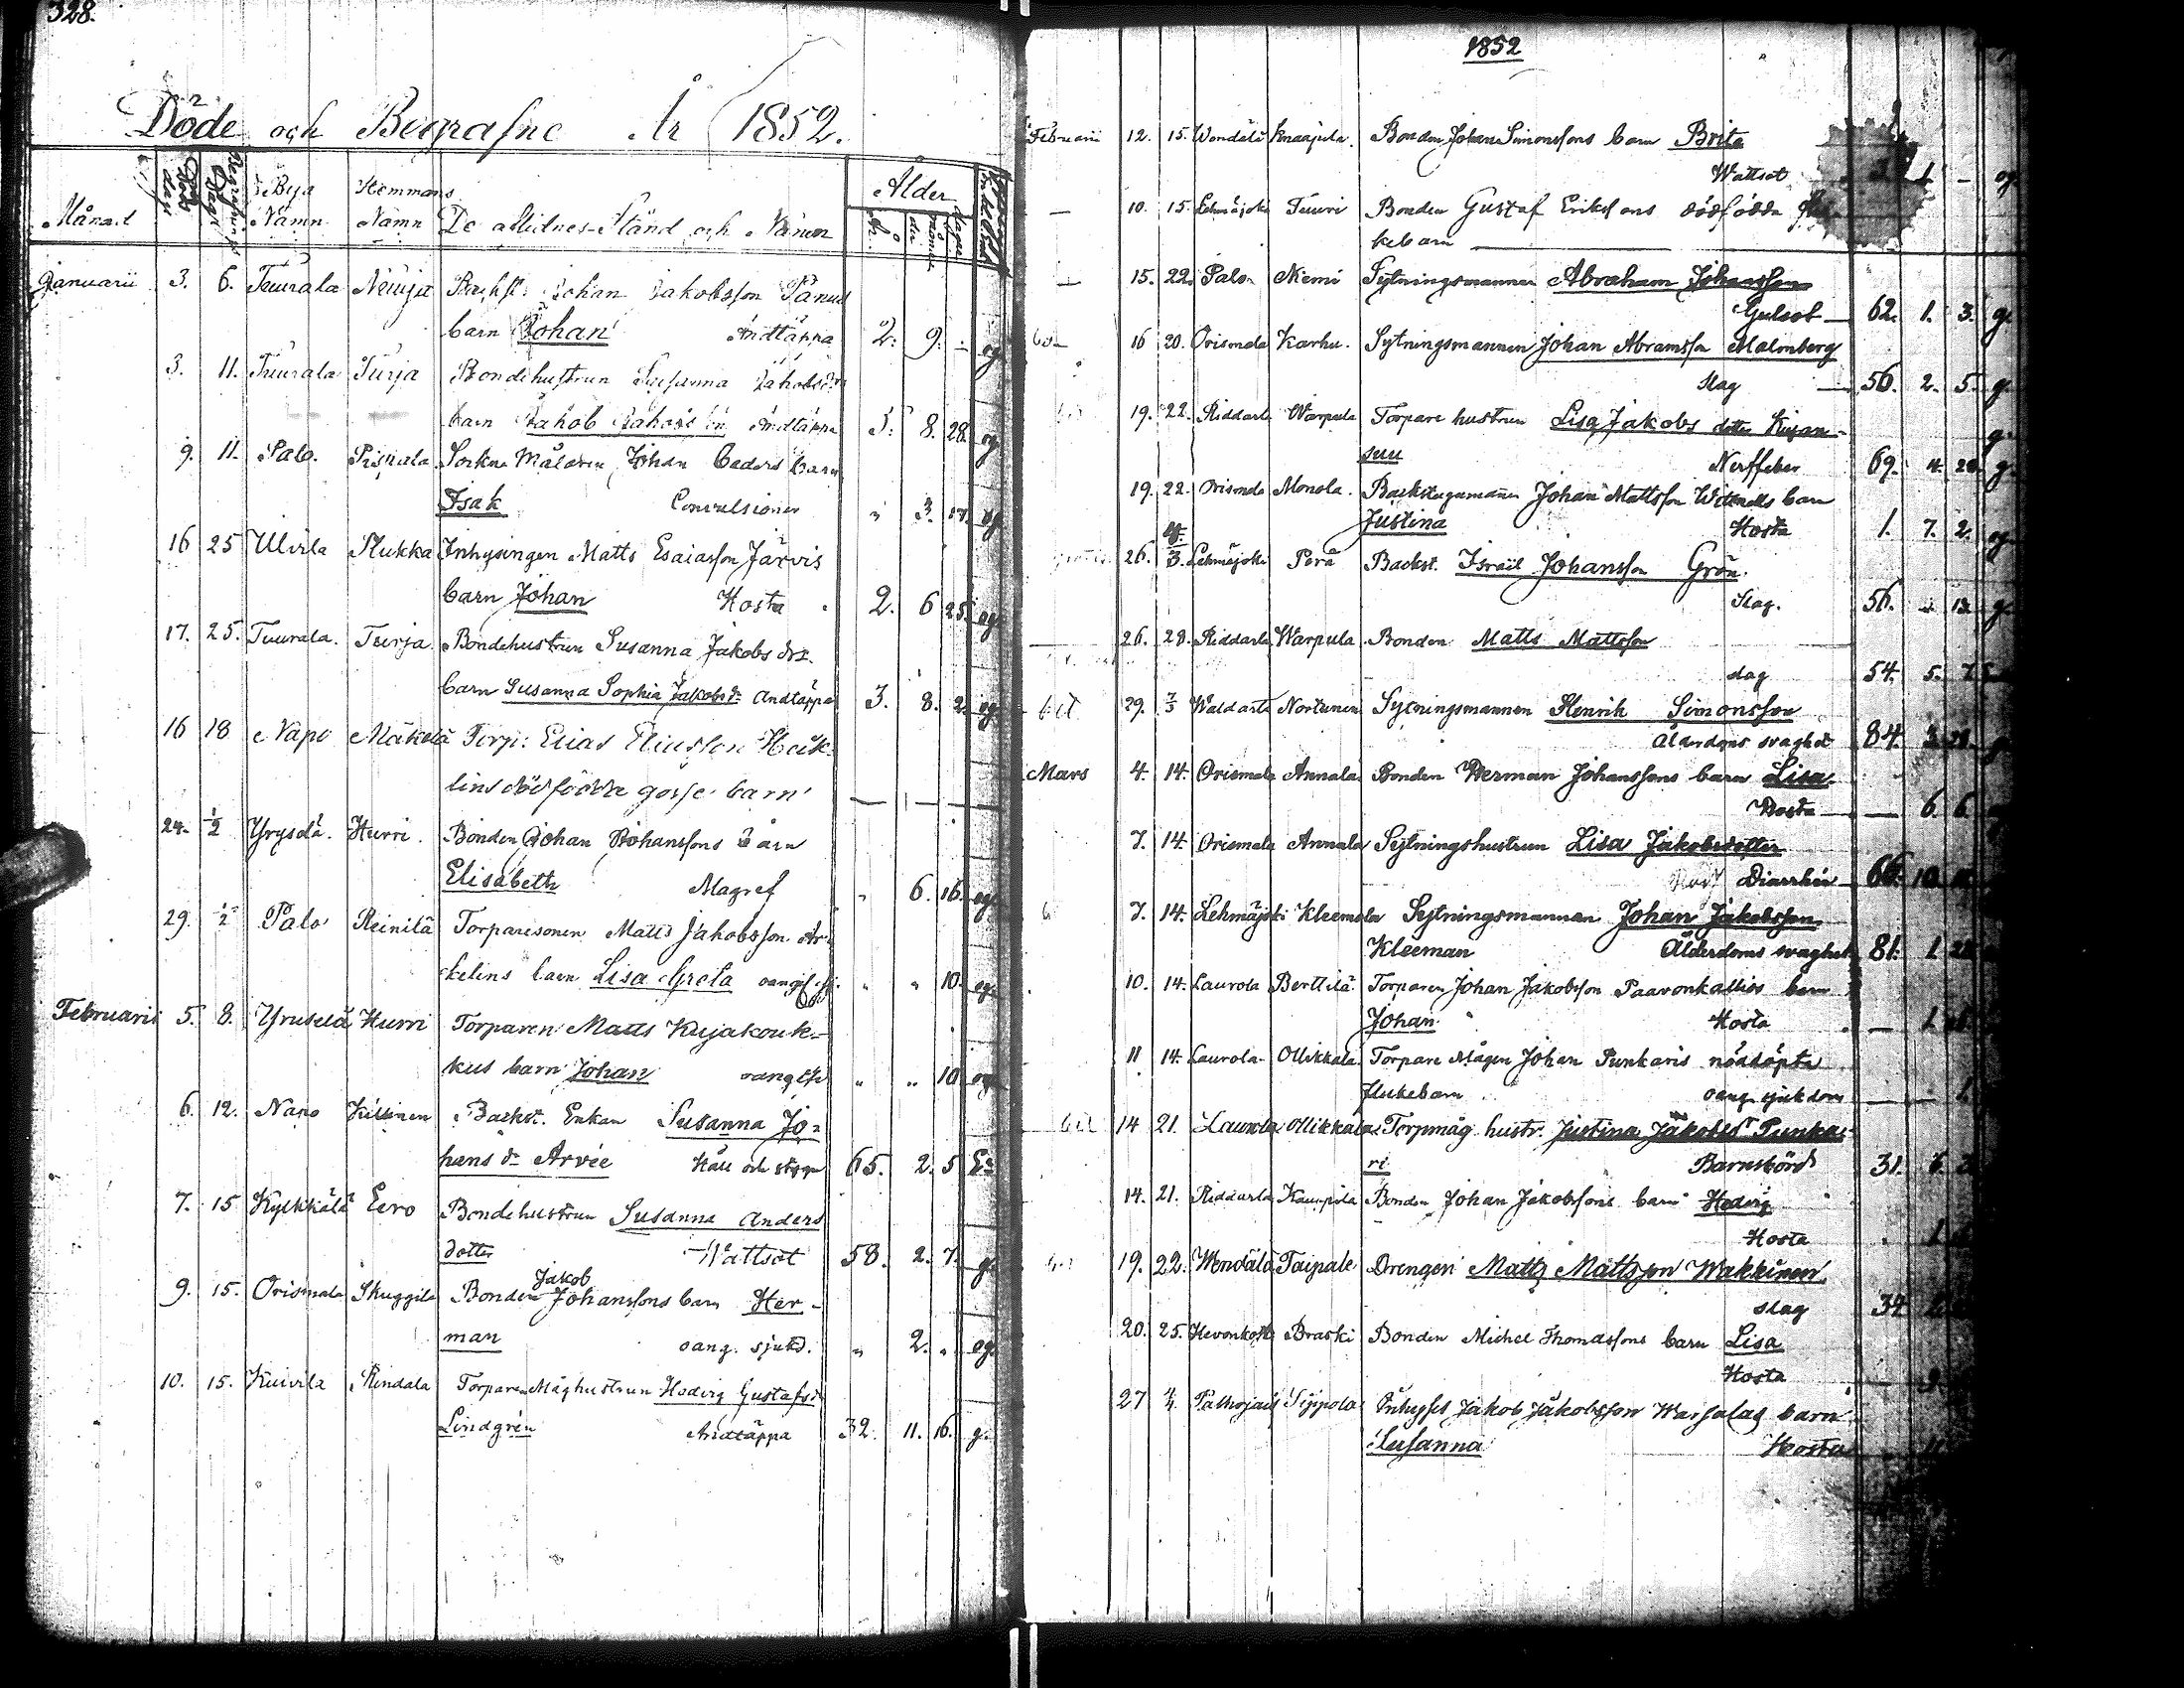 328.
Döde och Begrafne År 1852.
Månad Bya Namn Hemmans Namn De aflidnes Stånd och Namn Ålder
Januarii 3. 6. Tuurala Backst: Johan Jakobsson
barn Johan Andtäppa 2. 9. - og
3. 11. Tuurala Turja Bondehustrun Susanna Jakobsdr
barn Jakob Andtäppa 3. 8. 28. og
9. 11. Palo. Pispala Sockne Målaren Johan barn
Isak Convulsioner " 3. 17. og
16 25 Ulvila Plukka Inhysingen Matts Esaiasson Järvis
barn Johan Hosta 2. 6 25 og
17. 25. Tuurala. Turja. Bondehustrun Susanna Jakobs dr.
barn Susanna Sophia Jakobsdr Andtäppa 3. 8. 2. og
16 18 Napo Mäkelä Torp: Elias Eliasson Hack-
lins dödfödde gosse barn — — —
24. 1/2 Yryselä. Hurri. Bonden Johan Johanssons barn
Elisabeth Magref " 6. 16. og
29. 1/2 Palo Reinilä Torparesonen Matts Jakobsson Ar-
kelins barn Lisa Greta oangif " " 10. og.
Februarii 5. 8. Yruselä Hurri Torparen Matts Kujakouk-
kus barn Johan oangifv " " 10 og
6. 12. Napo Backst. Enkan Susanna Jo-
hans dr Arvée Håll och styng 65. 2. 5 E:
7. 15 Kylkkälä Eero Bondehustrun Susanna Anders
dotter Wattsot 58. 2. 7. g.
9. 15. Orismala Skuggila Bonden Jakob Johanssons barn Her-
man oang. sjukd. " 2. " og.
10. 15. Kuivila Rindala Torparen Måghustrun Hedvig Gustafsdr
Lindgrén Andtäppa 32. 11. 16. g.
1852
Februarii 12. 15. Wendälä Knaapila. Bonden Johan Simonssons barn Brita
Wattsot 1 - og
— 10. 15. Lehmäjoki Tuuri Bonden Gustaf Erikssons dödfödda
kebarn —
— 15. 22. Palo Niemi Sytningsmannen Abraham Johansson
Gulsot 62. 1. 3. g.
16 20. Orismala Karhu. Sytningsmannen Johan Abramsson Malmberg
Slag 56. 2. 5. g.
19. 22. Riddarla Warpula Torpare hustrun Lisa Jakobs dotter Kujan-
suu Nerffeber 69. 4. 20. g.
19. 22. Orismala Monola. Backstugumannen Johan Mattsson barn
Justina Hosta 1. 7. 2. og
26. 4/3. Lehmäjoki Perä Backst. Israël Johansson Grön.
Slag. 56. 13. g.
26. 28. Riddarla Warpula Bonden Matts Mattsson
slag 54. 5.
29. 7/3 Waldarla Nortunen Sytningsmannen Henrik Simonsson
Ålderdoms svaghet 84. 3. 28. g
Mars 4. 14. Orismala Annala Bonden Herman Johanssons barn Lisa
Hosta — 6. 6.
7. 14. Orismala Annala Sytningshustrun Lisa Jakobsdotter
Diarrhée 66. 10.
7. 14. Lehmäjoki Kleemola Sytningsmannen Johan Jakobsson
Kleeman Ålderdoms svaghet 81. 1. 28
10. 14. Laurola Berttilä Torparen Johan Jakobsson Paavonkallios barn
Johan Hosta — 1.
11 14. Laurola Ollikkala Torpare Mågen Johan Punkaris nöddöpta
flickebarn oang. sjukdom — — 1.
14 21. Laurola Ollikkala Torpmåg hustr. Justina Jakobsdr Punka-
ri Barnsbörd 31. 6.
14. 21. Riddarla Kauppila Bonden Johan Jakobssons barn Hedvig
Hosta 1
19. 22. Wendälä Taipale Drengen Matts Mattsson Wakkinen
slag 34
20. 25. Hevonkoski Braski Bonden Michel Thomassons barn Lisa
Hosta — 9.
27 4/4. Palhojais Sippola Inhyses Jakob Jakobsson barn
Susanna Hosta